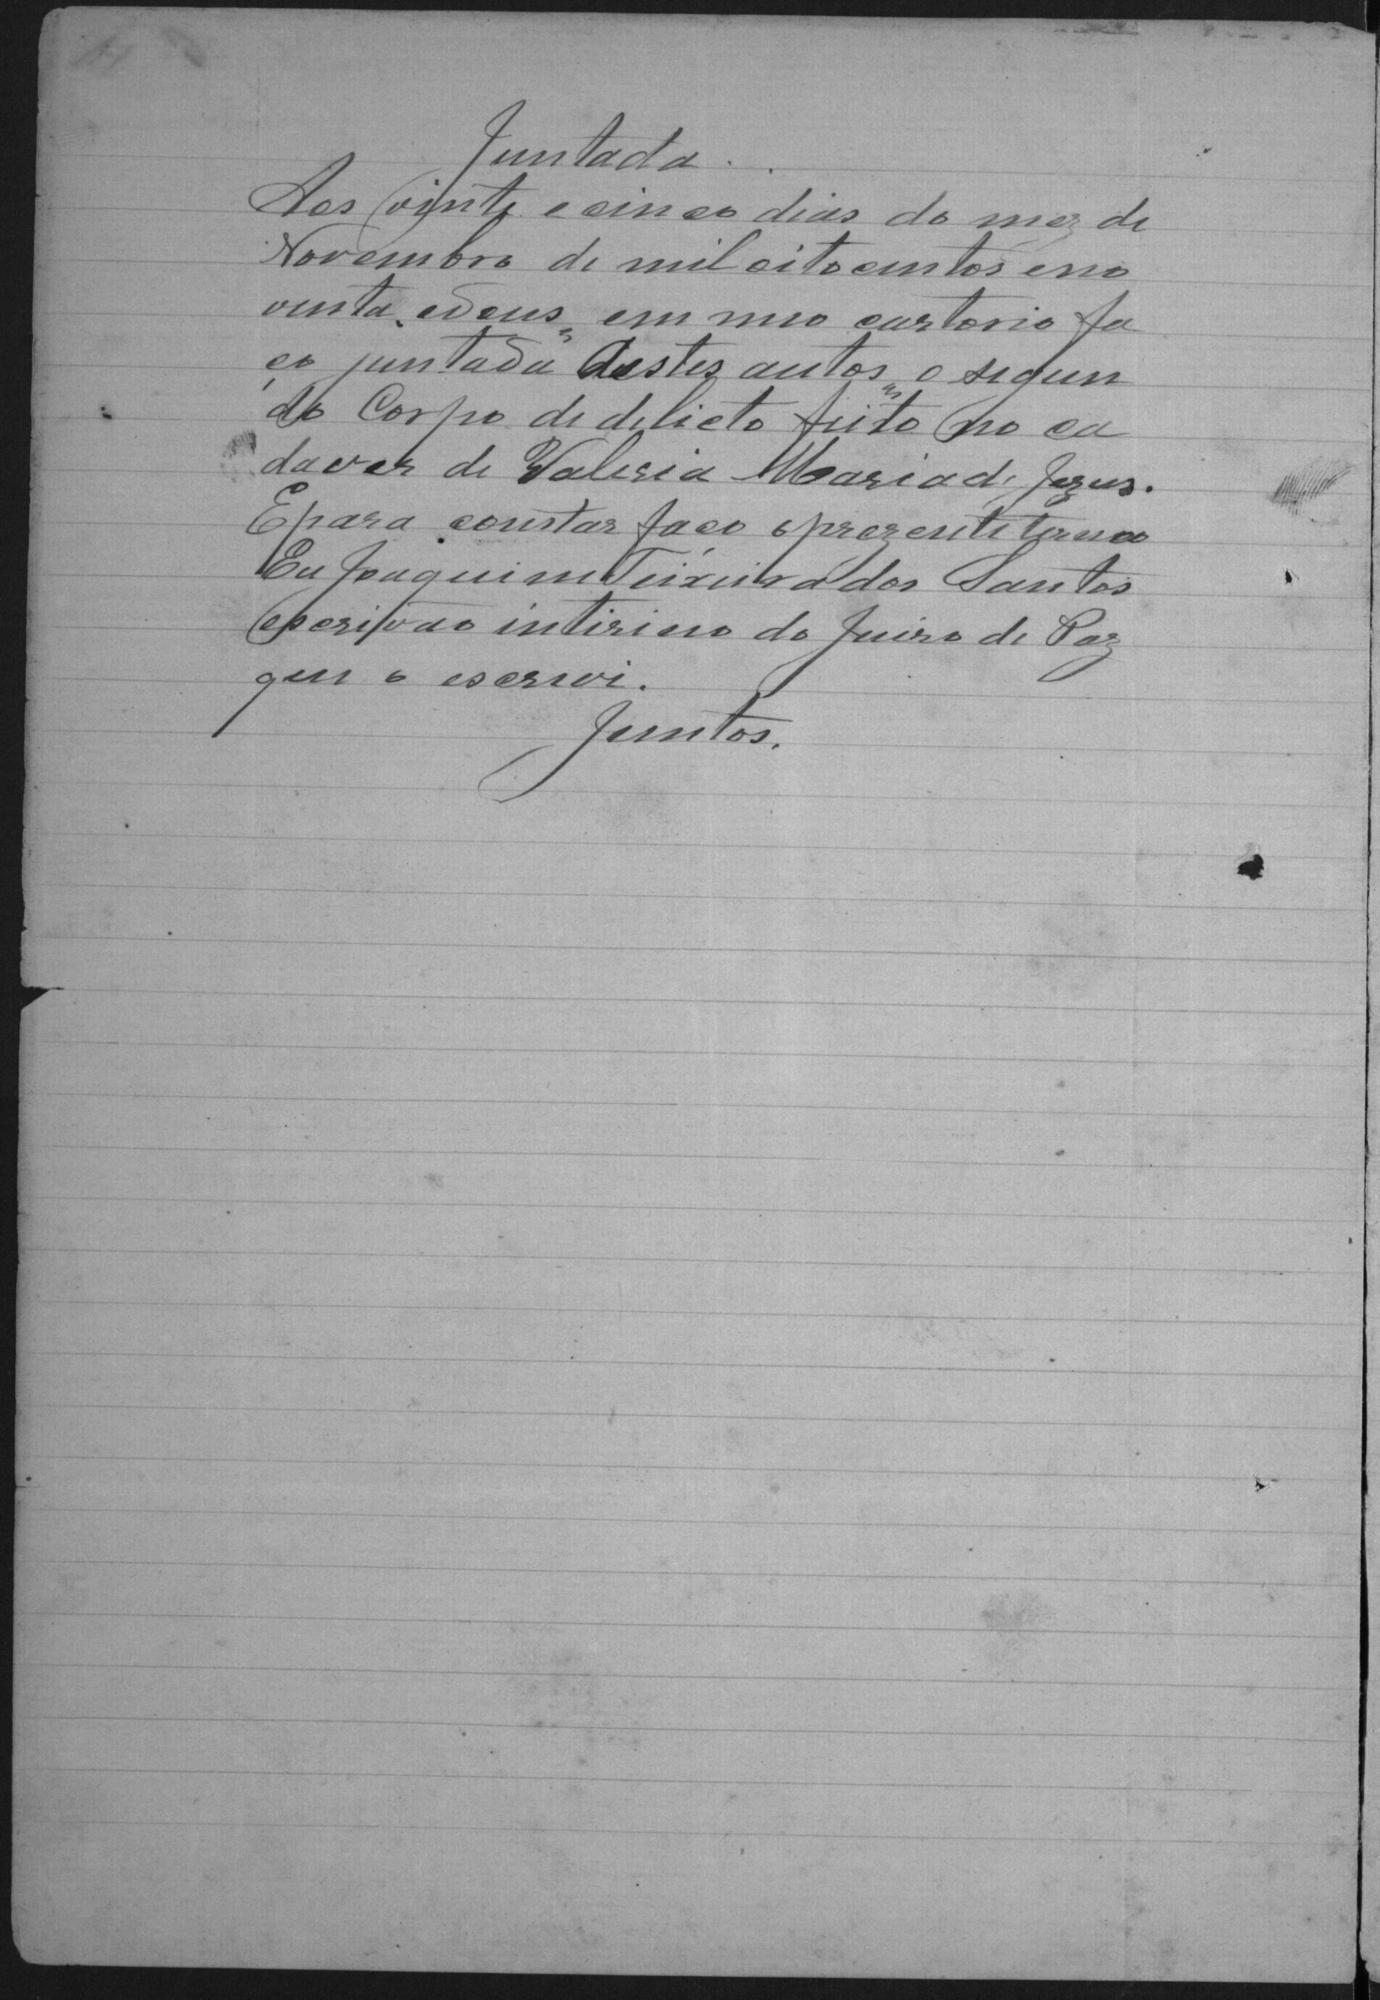 Juntada.
Aos vinte e cinco dias do mez de
Novembro de mil oitocentos e no
venta, e dous, em meo cartorio fa
ço juntada destes autos, o segun
do Corpo de delicto feito no ca
daver de Valeria Maria de Jezus.
E para constar faço o prezente termo
Eu Joaquim Teixeira dos Santos
escrivão intirino do Juiso de Paz
que o escrevi.
Juntos.